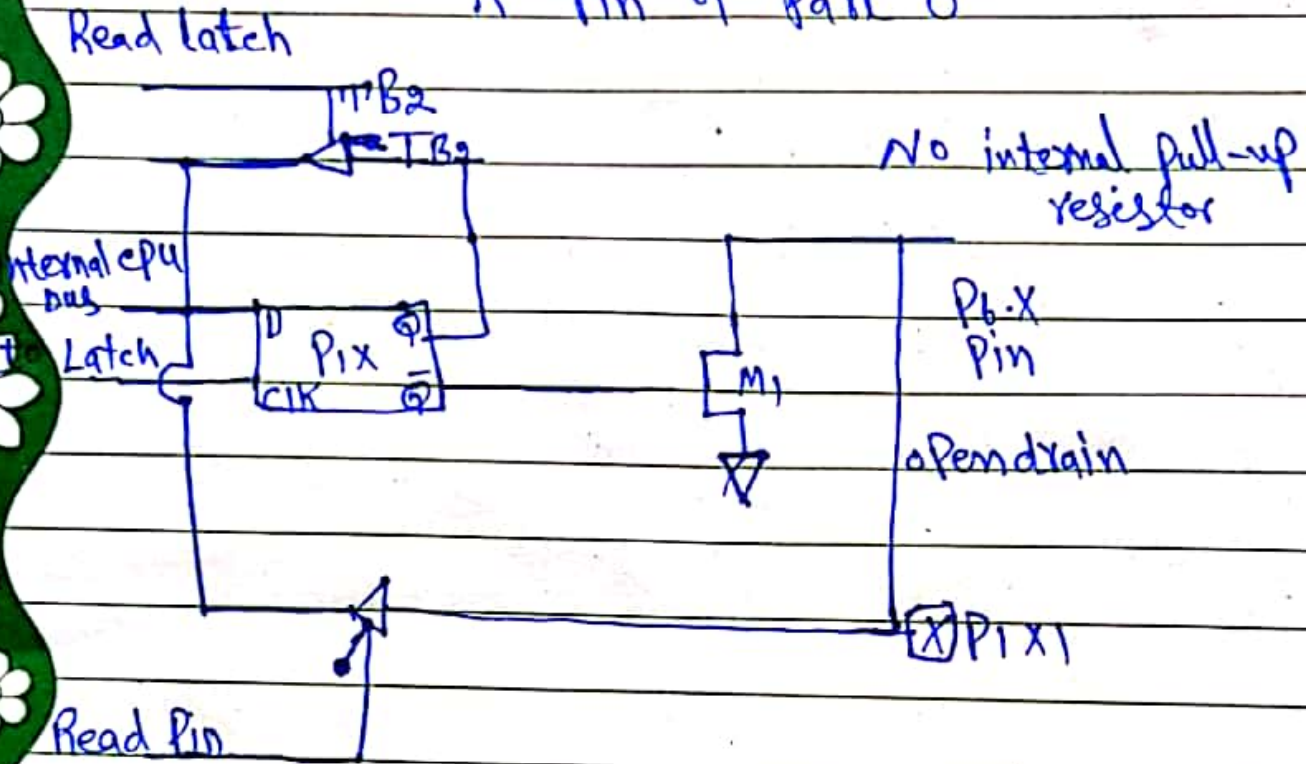 Read latch
TB2
TB2
No internal Pull-up
resistor
nternal CPU
bus
Latch
D
Q
P1X
CLK
Q̅
M1
P6.X
Pin
opendrain
X P1X1
Read Pin